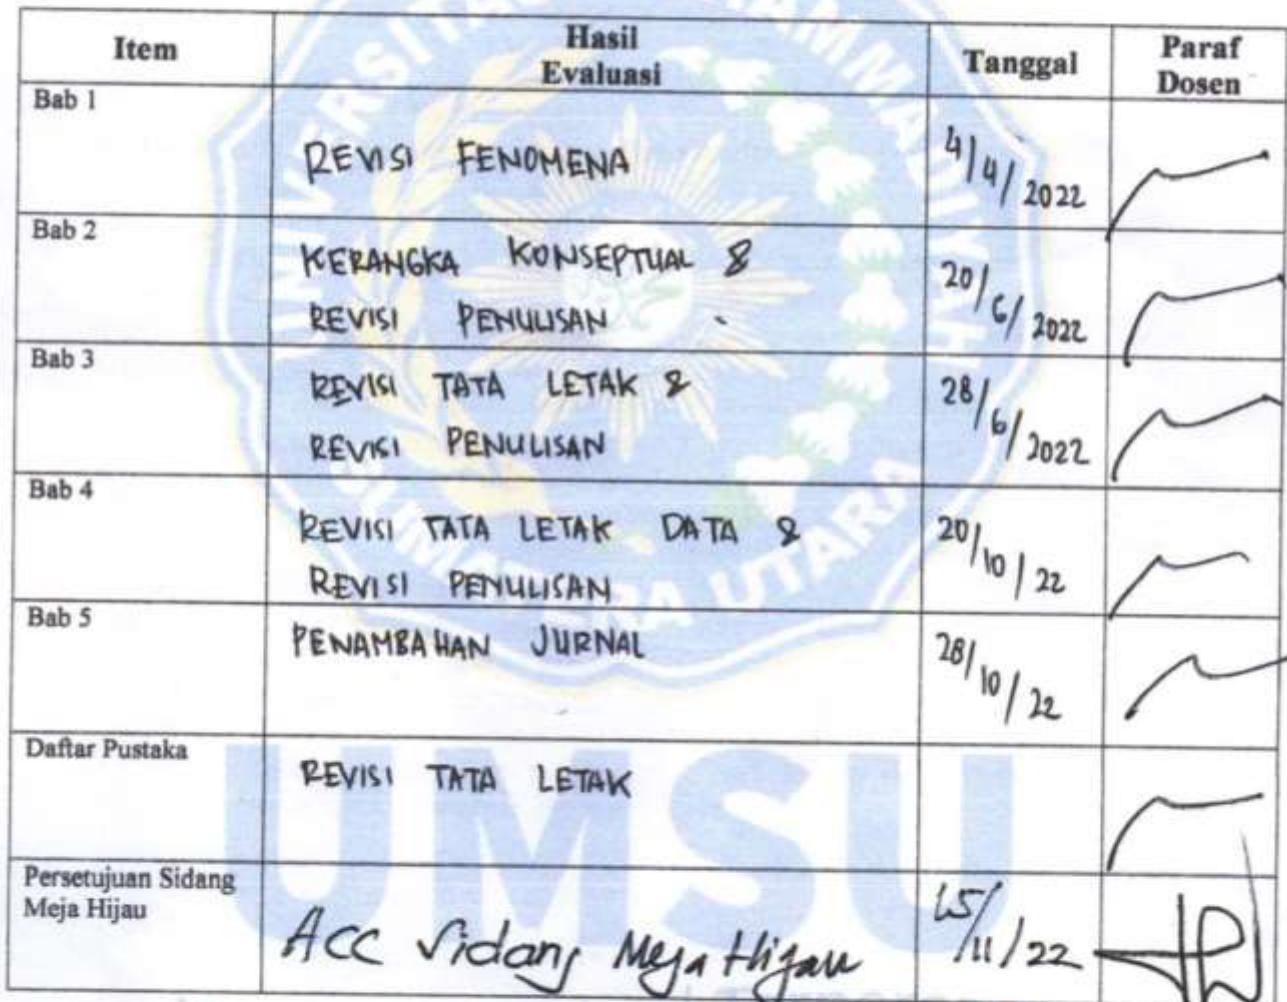 Item Hasil Evaluasi Tanggal Paraf Dosen
Bab 1
REVISI FENOMENA 4/4/2022
Bab 2
KERANGKA KONSEPTUAL &
REVISI PENULISAN 20/6/2022
Bab 3
REVISI TATA LETAK &
REVISI PENULISAN 28/6/2022
Bab 4
REVISI TATA LETAK DATA &
REVISI PENULISAN 20/10/22
Bab 5
PENAMBAHAN JURNAL 28/10/22
Daftar Pustaka
REVISI TATA LETAK
Persetujuan Sidang
Meja Hijau
ACC Sidang Meja Hijau 15/11/22
UMSU